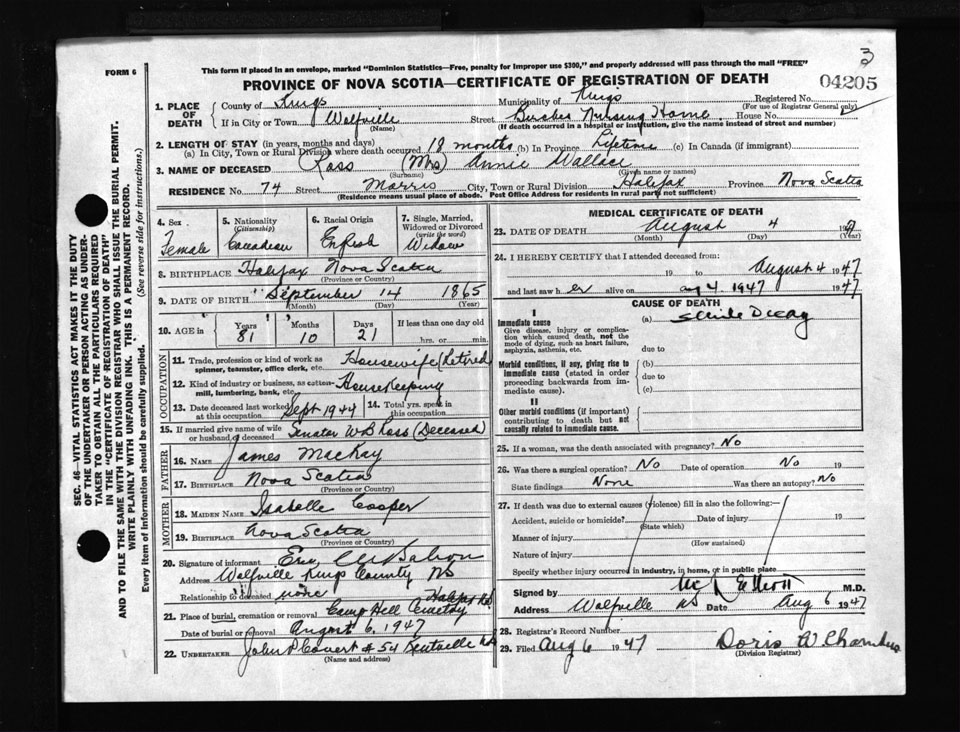 3
FORM 6
This form if placed in an envelope, marked "Dominion Statistics—Free, penalty for improper use $300," and properly addressed will pass through the mail "FREE"
PROVINCE OF NOVA SCOTIA—CERTIFICATE OF REGISTRATION OF DEATH
04205
SEC. 46—VITAL STATISTICS ACT MAKES IT THE DUTY
OF THE UNDERTAKER OR PERSON ACTING AS UNDER-
TAKER TO OBTAIN ALL THE PARTICULARS REQUIRED
IN THE "CERTIFICATE OF REGISTRATION OF DEATH"
AND TO FILE THE SAME WITH THE DIVISION REGISTRAR WHO SHALL ISSUE THE BURIAL PERMIT.
WRITE PLAINLY WITH UNFADING INK. THIS IS A PERMANENT RECORD.
Every item of information should be carefully supplied. (See reverse side for instructions.)
1. PLACE OF DEATH
County of Kings Municipality of Kings Registered No.
(For use of Registrar General only)
If in City or Town Wolfville Street Birches Nursing Home House No.
(Name) (If death occurred in a hospital or institution, give the name instead of street and number)
2. LENGTH OF STAY (in years, months and days)
(a) In City, Town or Rural Division where death occurred 18 months (b) In Province Lifetime (c) In Canada (if immigrant)
3. NAME OF DECEASED Ross (Mrs) Annie Wallace
(Surname) (Given name or names)
RESIDENCE No. 74 Street Morris City, Town or Rural Division Halifax Province Nova Scotia
(Residence means usual place of abode. Post Office Address for residents in rural parts not sufficient)
4. Sex Female
5. Nationality (Citizenship) Canadian
6. Racial Origin English
7. Single, Married, Widowed or Divorced (write the word) Widow
8. BIRTHPLACE Halifax Nova Scotia
(Province or Country)
9. DATE OF BIRTH September 14 1865
(Month) (Day) (Year)
10. AGE in Years 81 Months 10 Days 21 If less than one day old hrs. or min.
OCCUPATION
11. Trade, profession or kind of work as spinner, teamster, office clerk, etc. Housewife (Retired
12. Kind of industry or business, as cotton-mill, lumbering, bank, etc. Housekeeping
13. Date deceased last worked at this occupation Sept 1944 14. Total yrs. spent in this occupation
15. If married give name of wife or husband of deceased Senator W B Ross (Deceased)
FATHER
16. NAME James Mackay
17. BIRTHPLACE Nova Scotia
(Province or Country)
MOTHER
18. MAIDEN NAME Isabelle Cooper
19. BIRTHPLACE Nova Scotia
(Province or Country)
20. Signature of informant
Address Wolfville Kings County NS
Relationship to deceased none
21. Place of burial, cremation or removal Camp Hill Cemetery Halifax NS
Date of burial or removal August 6, 1947
22. UNDERTAKER John P Covert # 54 Kentville NS
(Name and address)
MEDICAL CERTIFICATE OF DEATH
23. DATE OF DEATH August 4 19
(Month) (Day) (Year)
24. I HEREBY CERTIFY that I attended deceased from:
19 to August 4 1947
and last saw h er alive on Aug 4 1947 1947
CAUSE OF DEATH
I
Immediate cause
Give disease, injury or complication which caused death, not the mode of dying, such as heart failure, asphyxia, asthenia, etc.
(a) Senile Decay
due to
Morbid conditions, if any, giving rise to immediate cause (stated in order proceeding backwards from immediate cause).
(b)
due to
(c)
II
Other morbid conditions (if important) contributing to death but not causally related to immediate cause.
25. If a woman, was the death associated with pregnancy? No
26. Was there a surgical operation? No Date of operation No 19
State findings None Was there an autopsy? No
27. If death was due to external causes (violence) fill in also the following:—
Accident, suicide or homicide? Date of injury 19
(State which)
Manner of injury
(How sustained)
Nature of injury
Specify whether injury occurred in industry, in home, or in public place
Signed by Elliott M.D.
Address Wolfville NS Date Aug 6 1947
28. Registrar's Record Number
29. Filed Aug 6 1947 Doris W. Chambers
(Division Registrar)